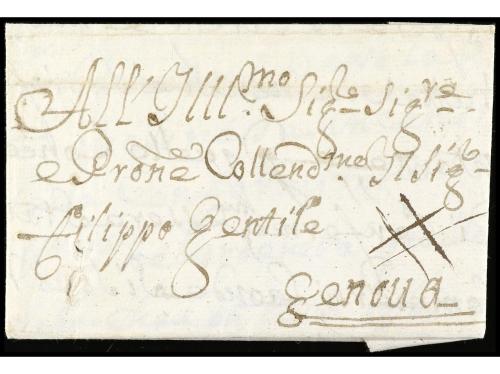 All' Ill.mo Sig.re Sig.re
e Prone Collend.mo Il Sig.re
filippo Gentile
Genoua